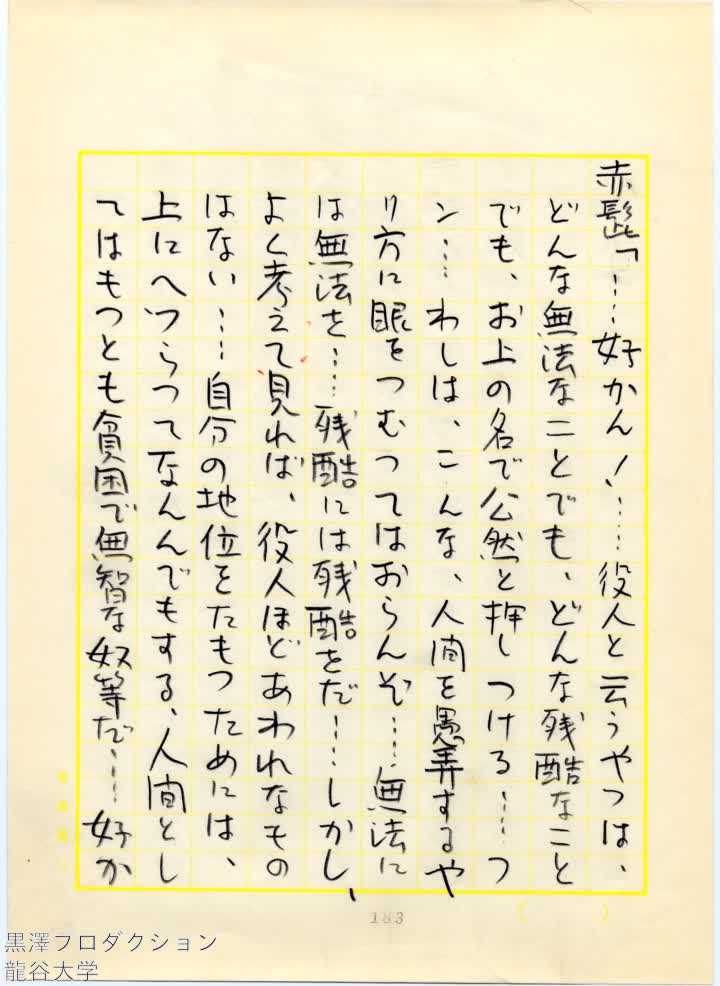 赤髭「……好かん!……役人と云うやつは、
どんな無法なことでも、どんな残酷なこと
でも、お上の名で公然と押しつける……つ
ン……わしは、こんな、人間を愚弄するや
り方に眼をつむつてはおらんぞ……無法に
は無法を……残酷には残酷をだ……しかし、
よく考えて見れば、役人ほどあわれなもの
はない……自分の地位をたもつためには、
上にへつらつてなんでもする、人間とし
てはもつとも貧困で無智な奴等だ……好か
183
黒澤プロダクション
龍谷大学